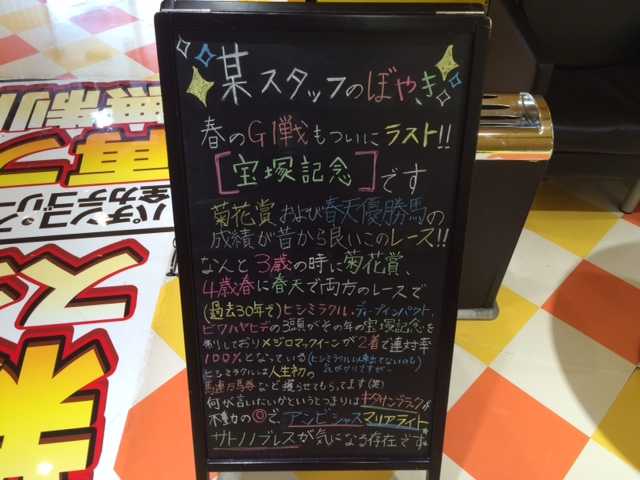 某スタッフのぼやき
春のG1戦もついにラスト!!
[宝塚記念]です
菊花賞および春天優勝馬の
成績が昔から良いこのレース!!
なんと3歳の時に菊花賞、
4歳春に春天で両方のレースで
(過去30年で)ヒシミラクル・ディープインパクト、
ビワハヤヒデの3頭がその年の宝塚記念を
制しておりメジロマックイーンが2着で連対率
100%となっている(ヒシミラクル以来出てないのも
気がかりですが…
ヒシミラクルは人生初の
馬連万馬券など獲らせてもらってます(笑)
何が言いたいかというとつまりはキタサンブラックが
不動の◎で、アンビシャス マリアライト
サトノノブレスが気になる存在です。
パチンコ